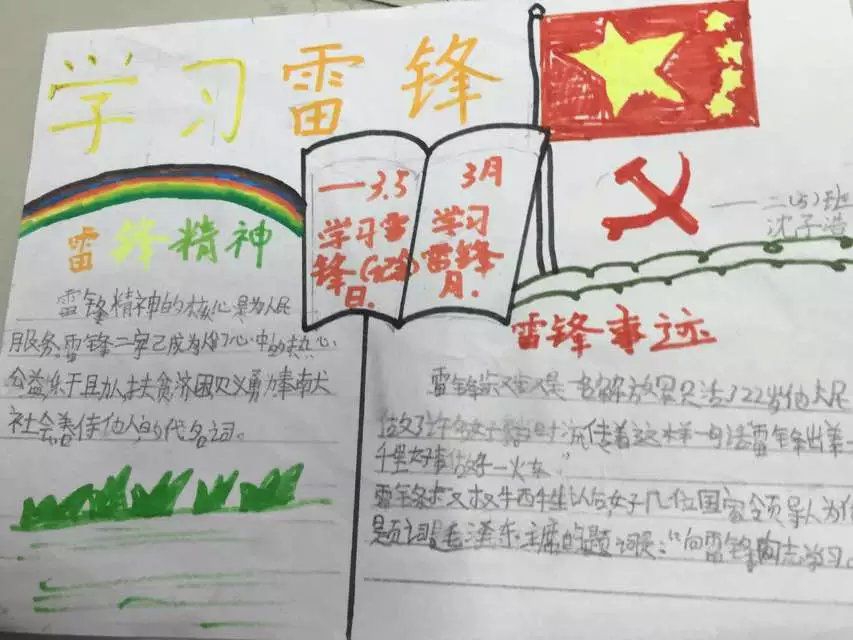 学习雷锋
一3.5
学习雷
锋
日.
3月
学习
雷锋
月.
二(5)班
沈子浩
雷锋精神
雷锋精神的核心是为人民
服务,雷锋二字已成为人们心中的热心
公益,乐于助人,扶贫济困,见义勇为,奉献
社会,善待他人的代名词。
雷锋事迹
雷锋
做了许多好 流传着这样一句话雷锋出差一
千里好事做好一火车."
雷锋 牺牲以后 几位国家领导人为
题词 毛泽东主席的题词是:"向雷锋同志学习。